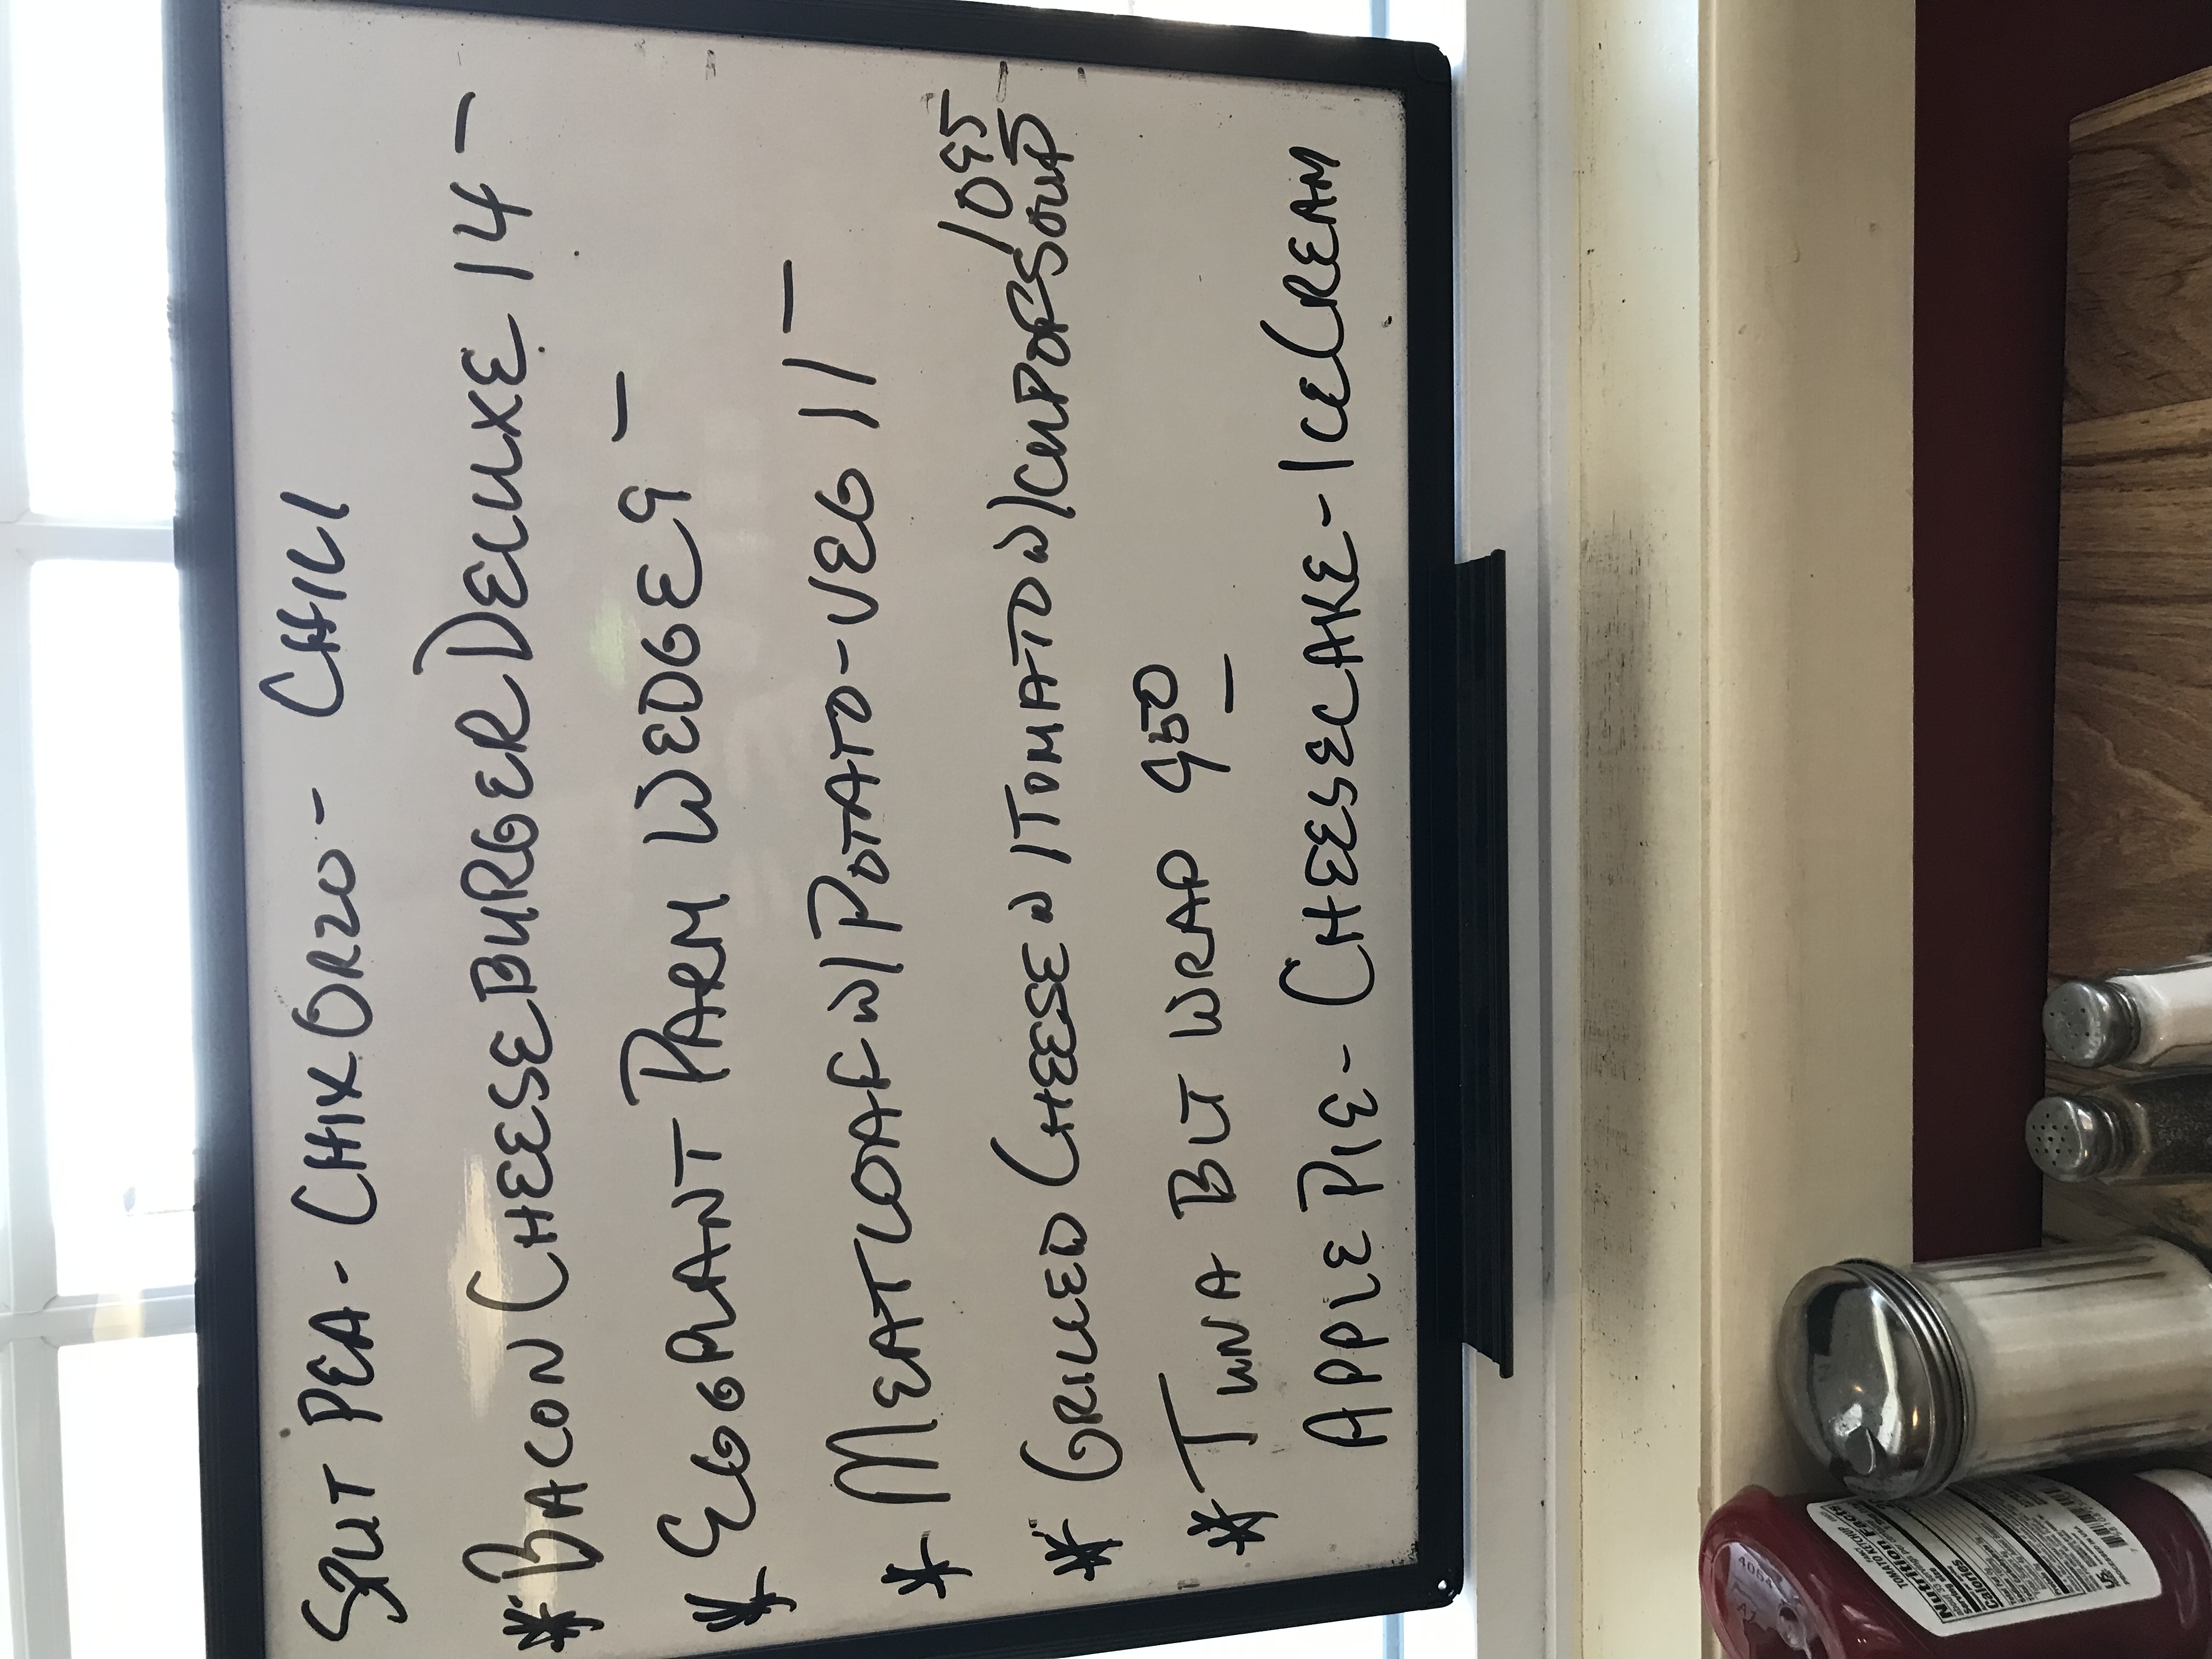 SPLIT PEA - CHIX ORZO - CHILI
* BACON CHEESEBURGER DELUXE 14 -
* EGGPLANT PARM WEDGE 9 -
* MEATLOAF W/ POTATO - VEG 11 -
* GRILLED CHEESE W/ TOMATO W/ CUP OF SOUP 10 95
* TUNA BLT WRAP 9 50
APPLE PIE - CHEESECAKE - ICE CREAM
TOMATO KETCHUP
Nutrition Facts
Calories